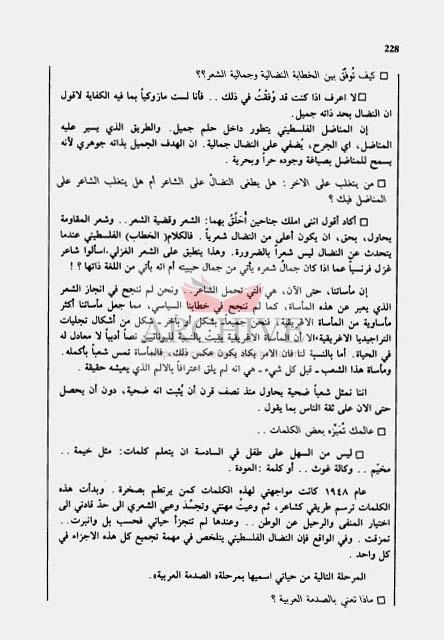 228
□ كيف تُوفّق بين الخطابة النضالية وجمالية الشعر؟؟
□ لا اعرف اذا كنت قد وُفقتُ في ذلك .. فأنا لست مازوكياً بما فيه الكفاية لاقول
ان النضال بحد ذاته جميل.
إن المناضل الفلسطيني يتطور داخل حلم جميل. والطريق الذي يسير عليه
المناضل، اي الجرح، يُضفي على النضال جمالية. ان الهدف الجميل بذاته جوهري لأنه
يسمح للمناضل بصياغة وجوده حراً وبحرية .
□ من يتغلب على الآخر : هل يطغى النضالُ على الشاعر أم هل يتغلب الشاعر على
المناضل فيك ؟
□ أكاد أقول اننى املك جناحين أُحَلّقُ بهما: الشعر وقضية الشعر.. وشعر المقاومة
يحاول، بحق، ان يكون أعلى من النضال شعرياً . فالكلام (الخطاب) الفلسطيني عندما
يتحدث عن النضال ليس شعراً بالضرورة. وهذا ينطبق على الشعر الغزلي.اسألوا شاعر
غزل فرنسياً عما اذا كان جمالُ شعره يأتي من جمال حبيبته أم انه يأتي من اللغة ذاتها ؟ !
إن مأساتنا، حتى الآن، هي التي تحمل الشاعر.. ونحن لم ننجح في انجاز الشعر
الذي يعبر عن هذه المأساة، كما لم ننجح في خطابنا السياسي، مما جعل مأساتنا أكثر
مأساوية من المأساة الاغريقية. فنحن جميعاً، بشكل أو بآخر، شكل من أشكال تجليات
التراجيديا الاغريقية.الا أن المأساة الاغريقية بقيت بالنسبة لليونانيين نصاً أدبياً لا معادل له
في الحياة. أما بالنسبة لنا فان الامر يكاد يكون عكس ذلك، فالمأساة تمس شعباً بأكمله.
ومأساة هذا الشعب - قبل كل شيء - هي انه لم يلق اعترافاً بالالم الذي يعيشه حقيقة .
اننا نمثل شعباً ضحية يحاول منذ نصف قرن أن يُثبت انه ضحية، دون أن يحصل
حتى الان على ثقة الناس بما يقول .
□ عالمك تُمَيّزه بعض الكلمات ..
□ ليس من السهل على طفل في السادسة ان يتعلم كلمات: مثل خيمة ..
مخيّم .. وكالة غوث .. أو كلمة :العودة .
عام ١٩٤٨ كانت مواجهتي لهذه الكلمات كمن يرتطم بصخرة . وبدأت هذه
الكلمات ترسم طريقي كشاعر، ثم وعيتُ مهنتي وتجسّد وعيي الشعري الى حد قادني الى
اختيار المنفى والرحيل عن الوطن .. وعندها لم تتجزأ حياتي فحسب بل وانبرت..
تمزقت . وفي الواقع فإن النضال الفلسطيني يتلخص في مهمة تجميع كل هذه الاجزاء في
كل واحد .
المرحلة التالية من حياتي اسميها بمرحلة «الصدمة العربية».
□ ماذا تعني بالصدمة العربية ؟
ARCHIVE